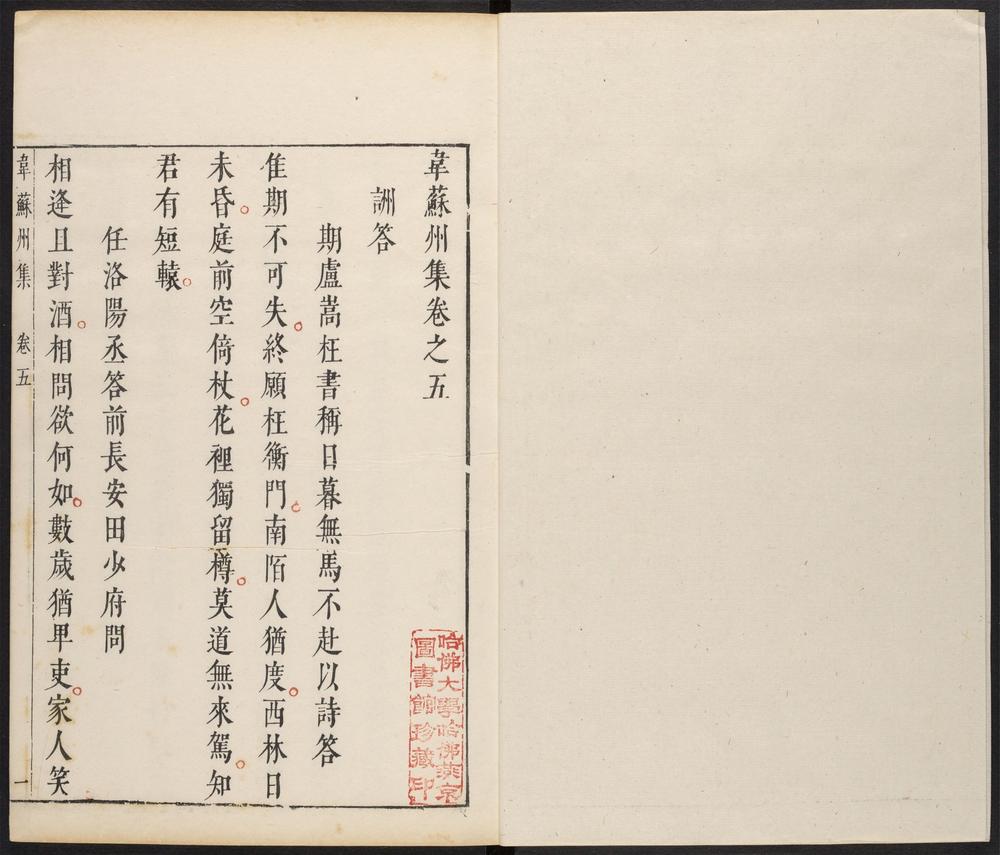 韋蘇州集卷之五
詶答
期盧嵩枉書稱日暮無馬不赴以詩答
佳期不可失終願枉衡門南陌人猶度西林日
未昏庭前空倚杖花裡獨留樽莫道無來駕知
君有短轅
任洛陽丞答前長安田少府問
相逢且對酒相問欲何如數歲猶卑吏家人笑
韋蘇州集 卷五 一
哈佛大學哈佛燕京
圖書館珍藏印